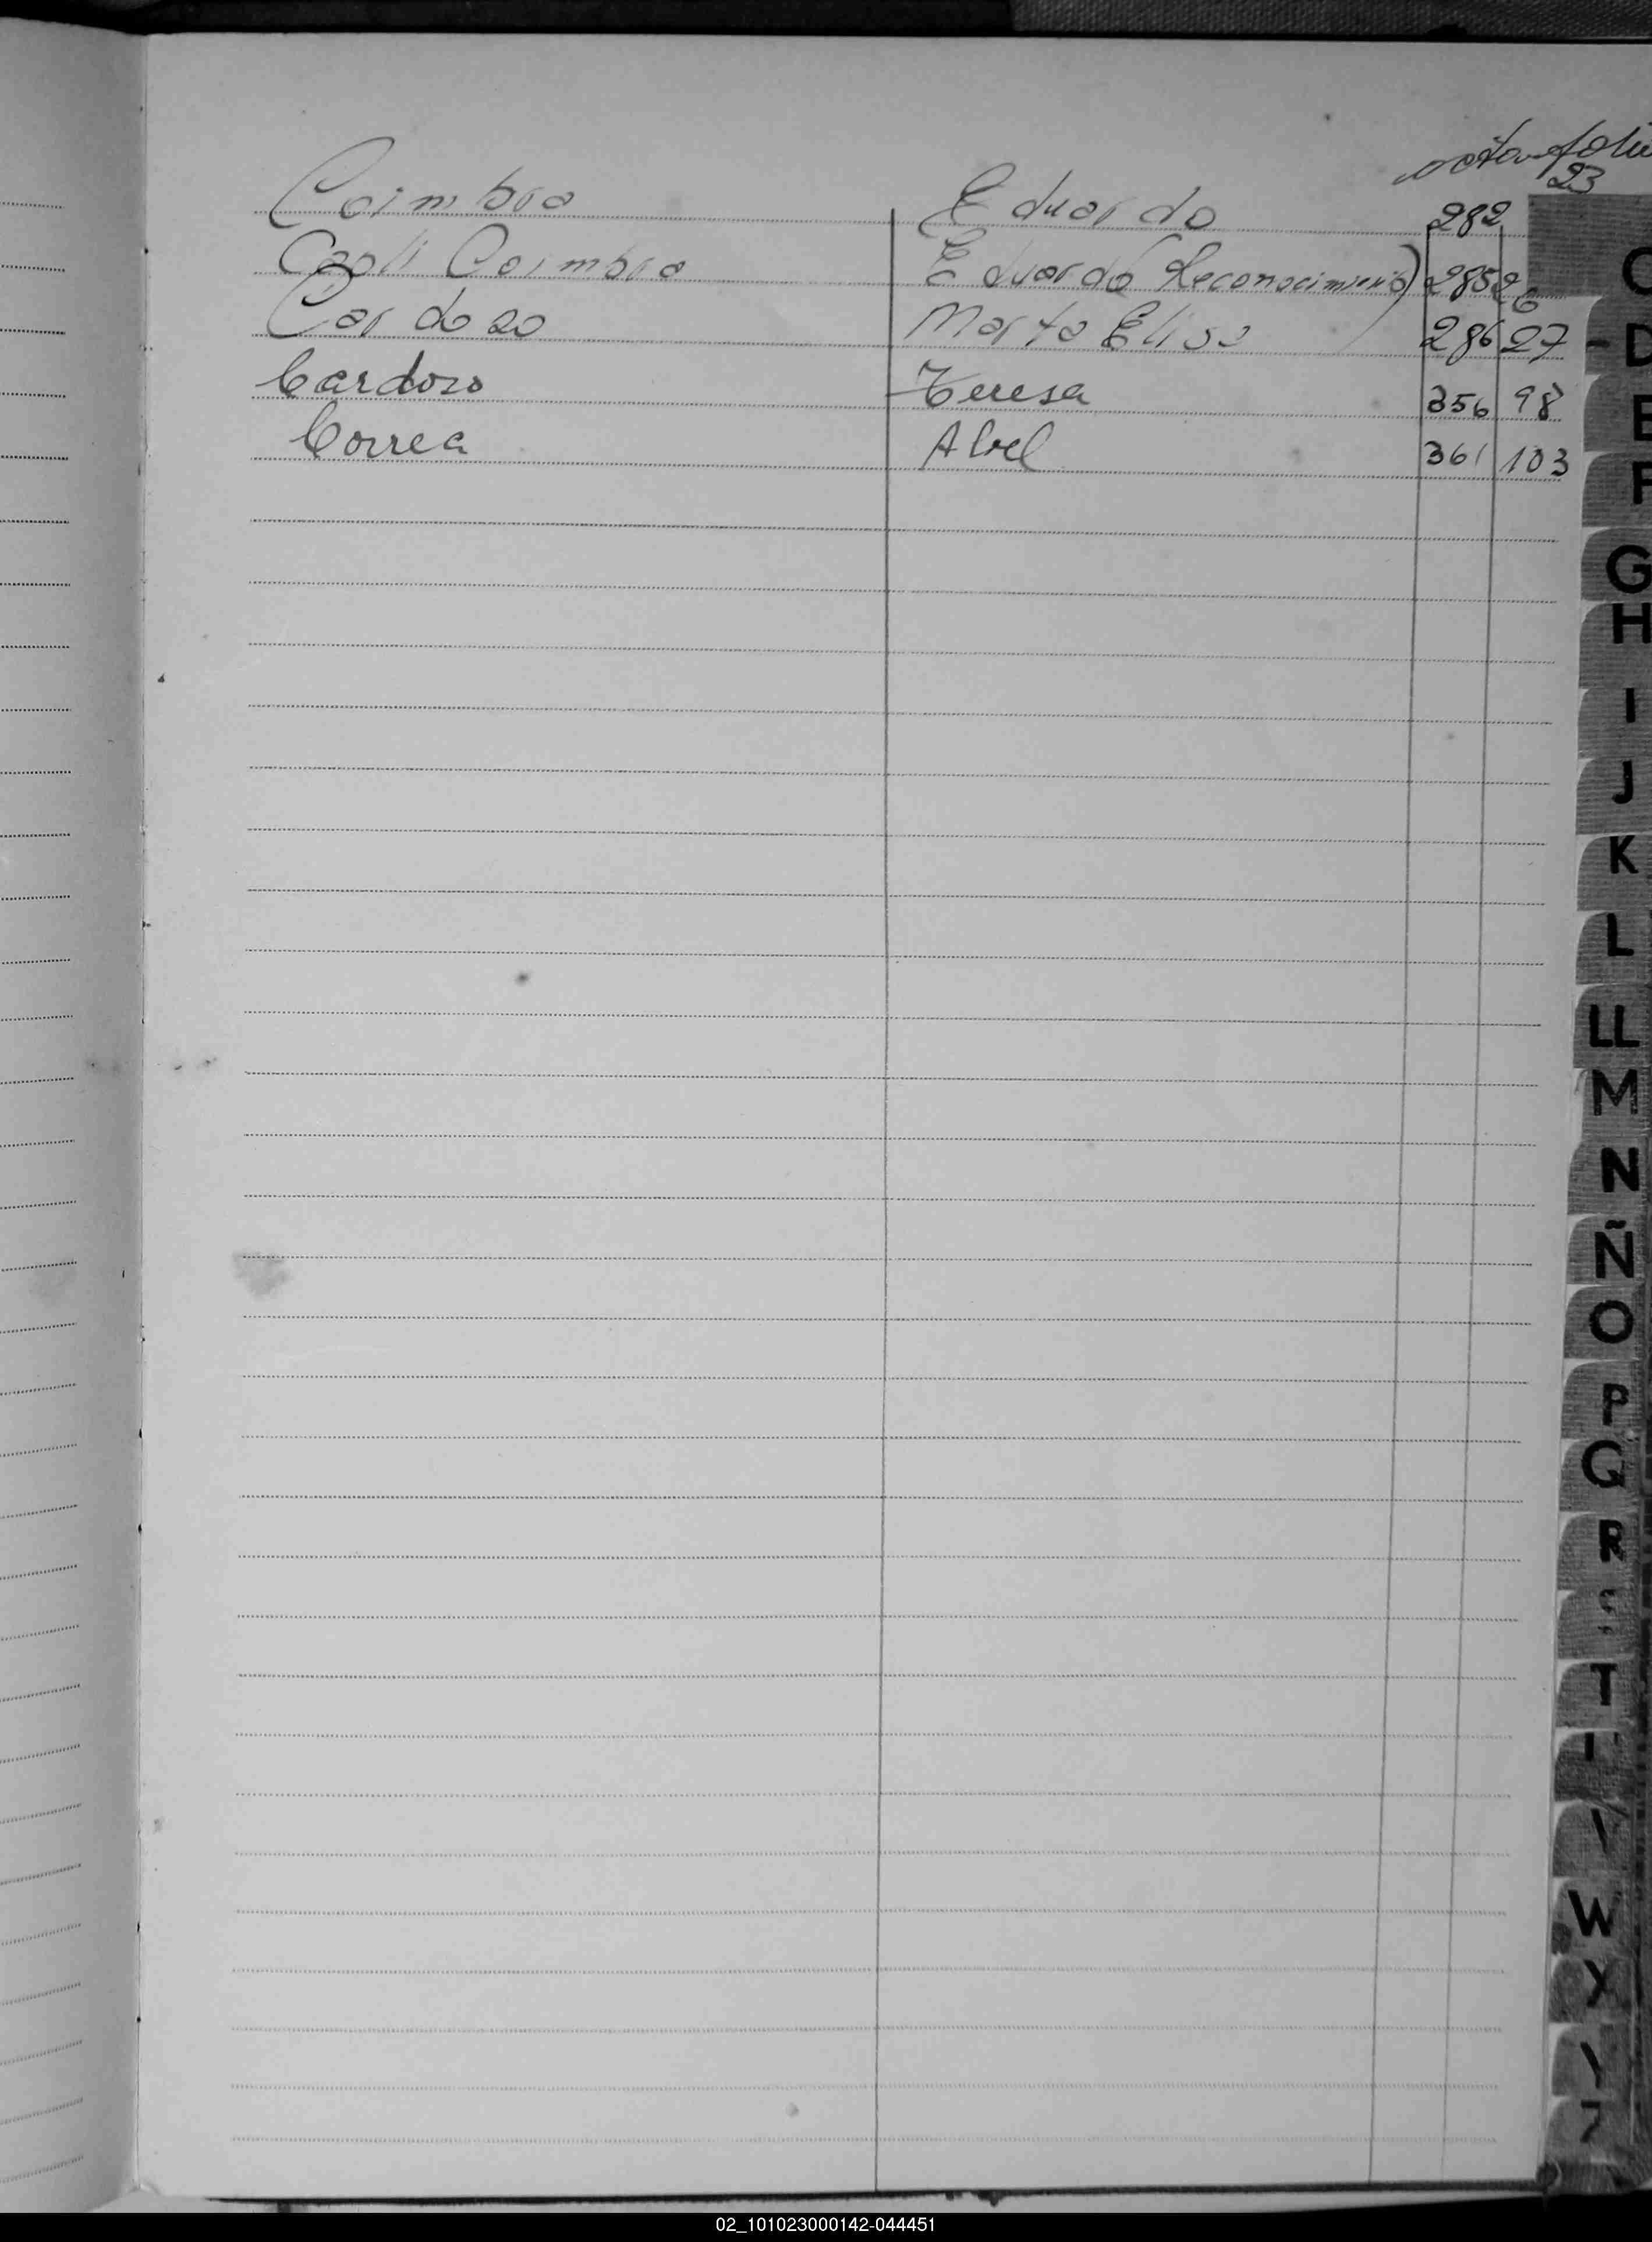 acta folio
23
Coimbra Eduardo 282
Capli Coimbra Eduardo (Reconocimiento) 285 26
Cardozo Marta Elisa 286 27
Cardozo Teresa 356 98
Correa Abel 361 103
C
D
E
F
G
H
I
J
K
L
LL
M
N
Ñ
O
P
Q
R
S
T
W
X
02_101023000142-044451